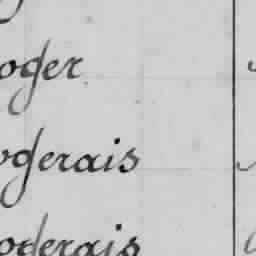 oger
ogerais
ogerais